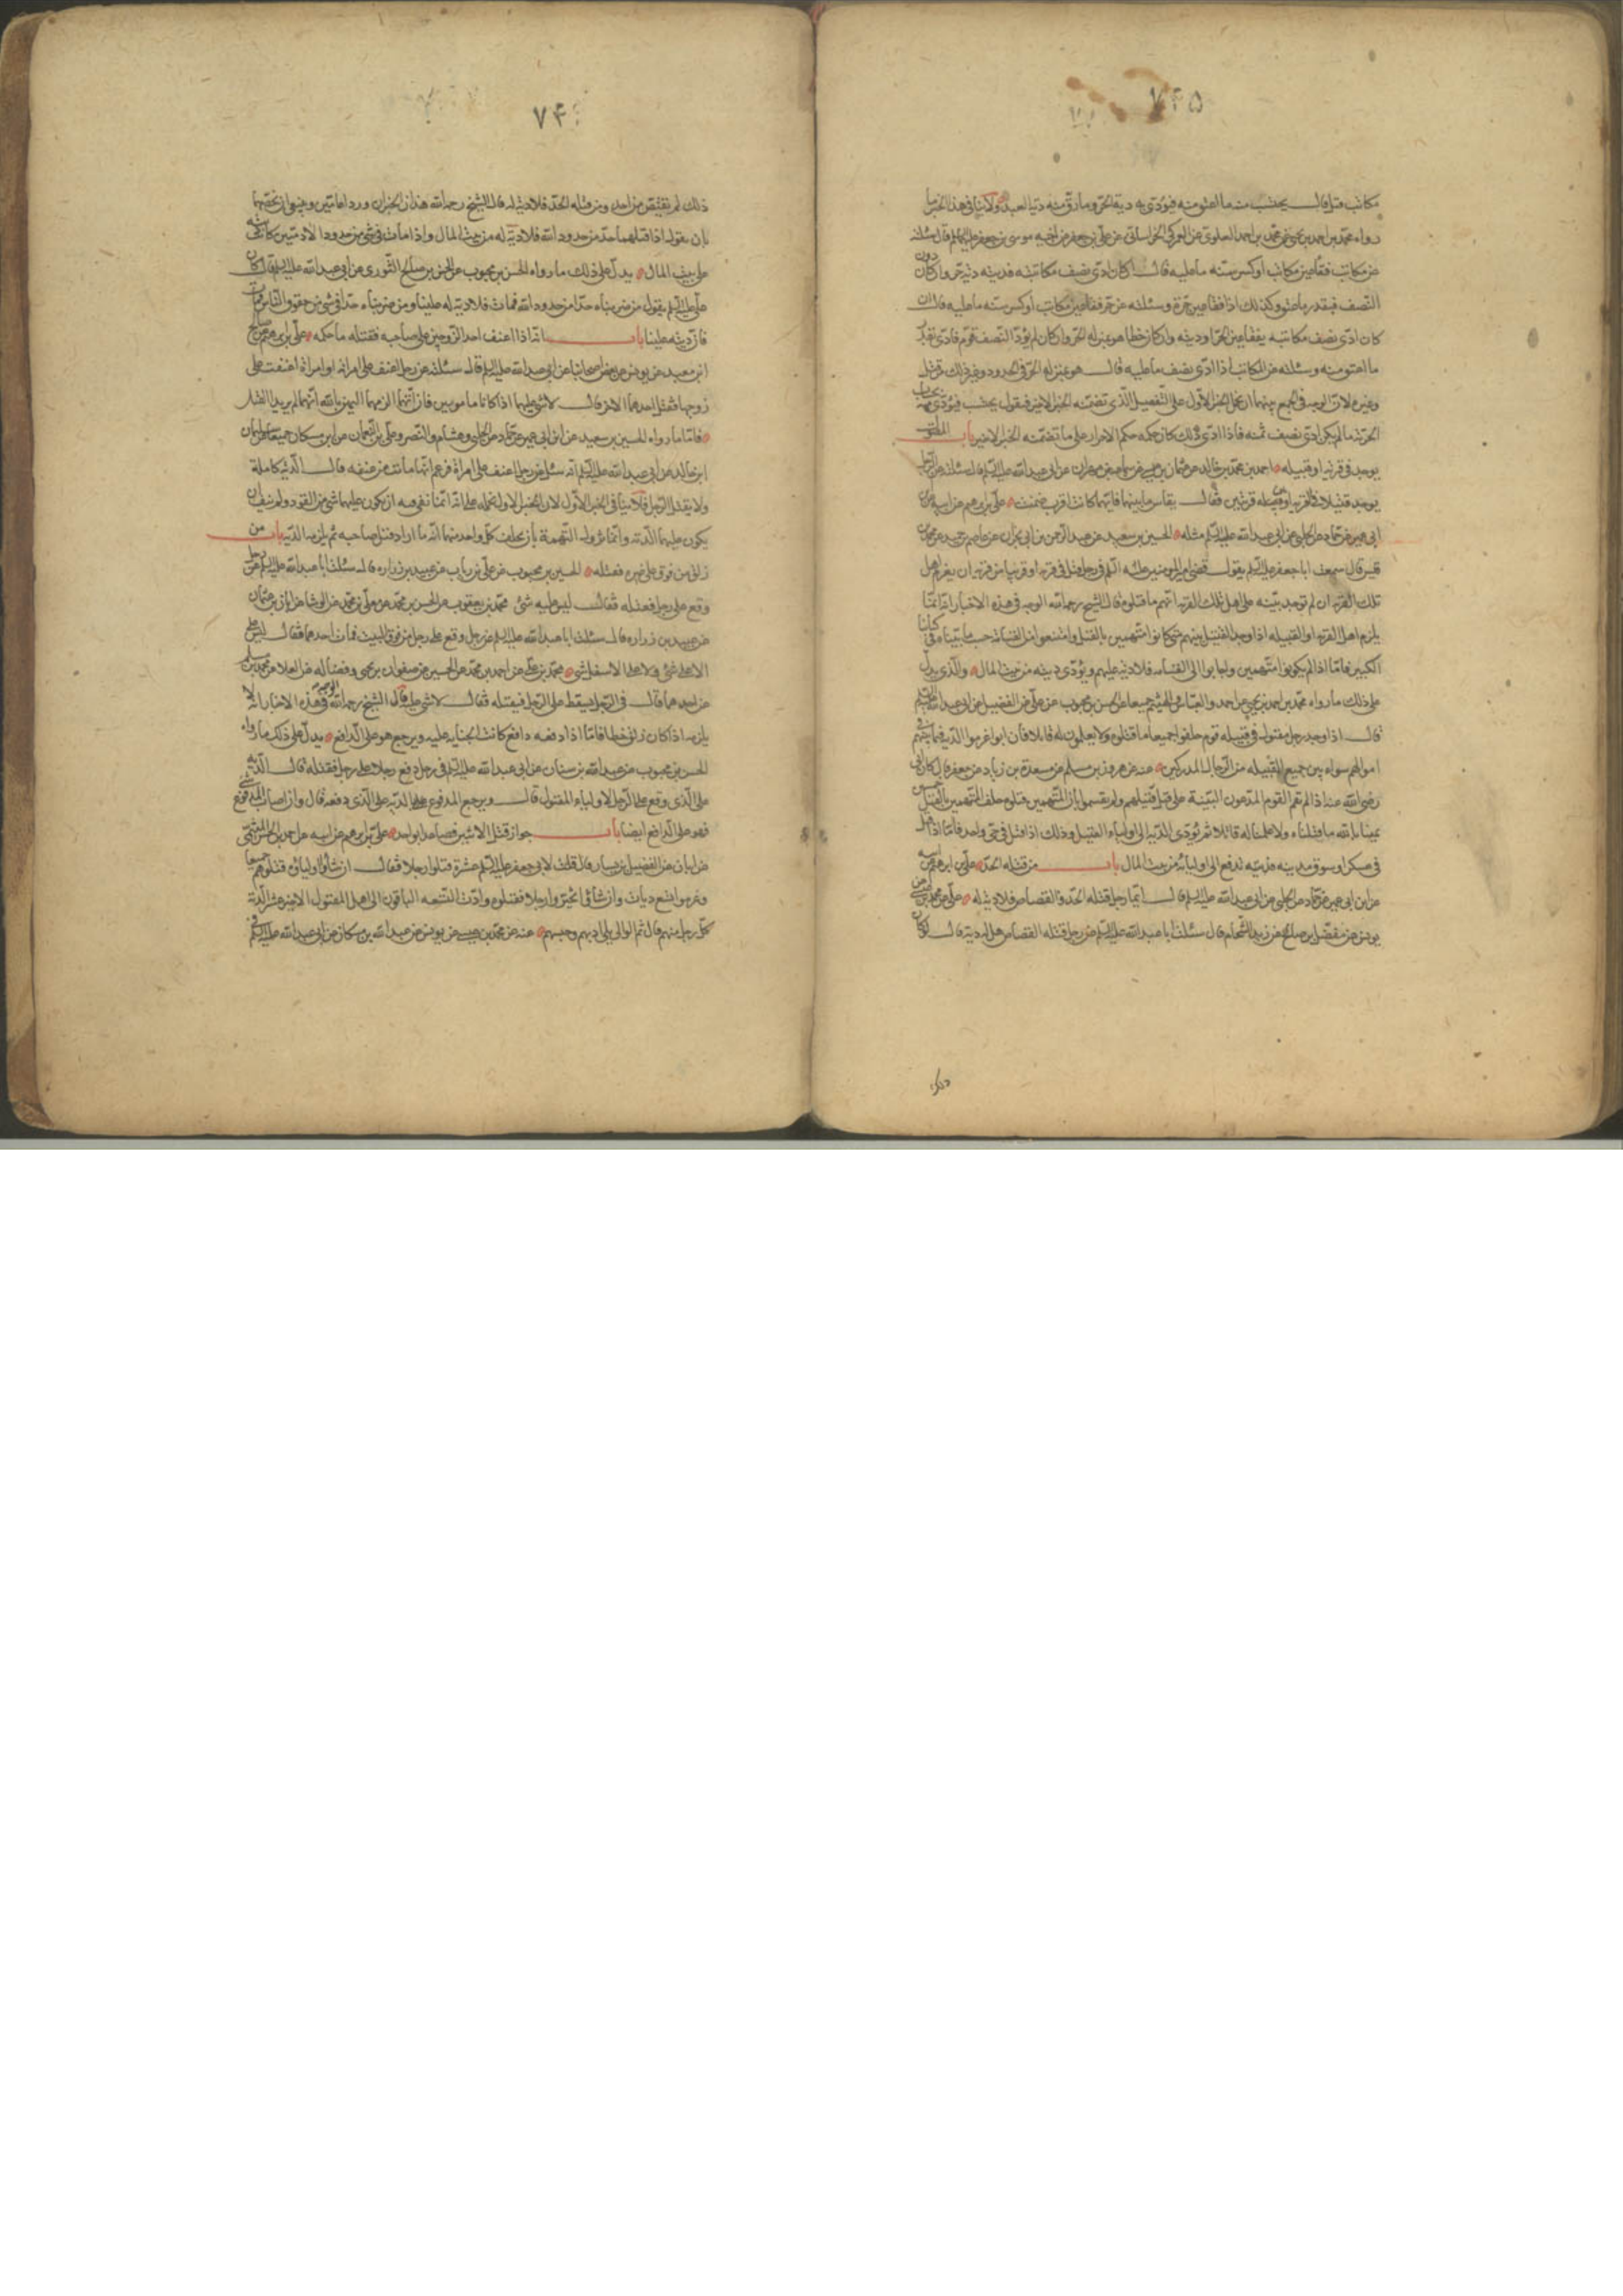 ٧٤٥
مكاتب قتل قال يحتسب منه ما اعتق منه فيؤدى به دية الحر وما رق منه دية العبد ولا ينافي هذا الخبر ما
رواه محمد بن احمد بن يحيى عن محمد بن احمد العلوى عن العمركى الخراسانى عن على بن جعفر عن اخيه موسى بن جعفر عليهما السلم قال سئلته
عن مكاتب فقأ عين مكاتب او كسر سنه ما عليه قال ان كان ادى نصف مكاتبته فديته دية حر وان كان دون
النصف فبقدر ما عتق وكذلك اذا فقأ عين حر وسئلته عن حر فقأ عين مكاتب او كسر سنه ما عليه قال ان
كان ادى نصف مكاتبته يفقأ عين الحر او ديته وان كان خطا هو بمنزلة الحر وان كان لم يؤد النصف قوم فادى بقدر
ما اعتق منه وسئلته عن المكاتب اذا ادى نصف ما عليه قال هو بمنزلة الحر فى الحدود وغير ذلك من قتل
وغيره لان الوجه فى الجمع بينهما ان نحمل الخبر الاول على التفصيل الذى تضمنه الخبر الاخير فنقول يحتسب فيؤدى منه بحساب
الحرية ما لم يكن ادى نصف ثمنه فاذا ادى ذلك كان حكمه حكم الاحرار على ما تضمنه الخبر الاخير باب المقتول
يوجد فى قرية او قبيله احمد بن محمد بن خالد عن عثمان بن عيسى عن سماعة بن مهران عن ابى عبد الله عليه السلم قال سئلته عن الرجل
يوجد قتيلا فى القرية او بين قريتين فقال يقاس ما بينهما فايهما كانت اقرب ضمنت على بن ابرهيم عن ابيه عن
ابن ابى عمير عن حماد عن الحلبى عن ابى عبد الله عليه السلم مثله الحسين بن سعيد عن عبد الرحمن بن ابى نجران عن عاصم بن حميد عن محمد بن
قيس قال سمعت ابا جعفر عليه السلم يقول قضى امير المومنين عليه السلم فى رجل قتل فى قرية او قريبا من قرية ان يغرم اهل
تلك القرية ان لم توجد بينه على اهل تلك القرية انهم ما قتلوه قال الشيخ رحمه الله الوجه فى هذه الاخبار انه انما
يلزم اهل القرية او القبيله اذا وجد القتيل بينهم متى كانوا متهمين بالقتل وامتنعوا من القسامة حسب ما بيناه فى كتابنا
الكبير فاما اذا لم يكونوا متهمين واجابوا الى القسامه فلا دية عليهم ويؤدى ديته من بيت المال والذى يدل
على ذلك ما رواه محمد بن احمد بن يحيى عن احمد والعباس والهيثم جميعا عن الحسن بن محبوب عن على بن الفضيل عن ابى عبد الله عليه السلم
قال اذا وجد رجل مقتول فى قبيله قوم حلفوا جميعا ما قتلوه ولا يعلمون له قاتلا فان ابوا غرموا الدية فيما بينهم فى
اموالهم سواء بين جميع القبيله من الرجال المدركين عنه عن هرون بن مسلم عن مسعدة بن زياد عن جعفر قال كان ابى
رضى الله عنه اذا لم تقم القوم المدعون البينة على قتل قتيلهم ولم يقسموا بان المتهمين قتلوه حلف المتهمين بالقتل خمسين
يمينا بالله ما قتلناه ولا علمنا له قاتلا ثم تؤدى الدية الى اولياء القتيل وذلك اذا قتل فى حى واحد فاما اذا قتل
فى عسكر او سوق مدينه فديته تدفع الى اوليائه من بيت المال باب من قتله الحد على بن ابرهيم عن ابيه
عن ابن ابى عمير عن حماد عن الحلبى عن ابى عبد الله عليه السلم قال ايما رجل قتله الحد والقصاص فلا دية له على عن محمد بن عيسى عن
يونس عن مفضل بن صالح عن زيد الشحام قال سئلت ابا عبد الله عليه السلم عن رجل قتله القصاص هل له دية قال لو كان
ذلك
٧٤
ذلك لم يقتص من احد ومن قتله الحد فلا دية له قال الشيخ رحمه الله هذان الخبران وردا عامين وينبغى ان نخصهما
بان نقول اذا قتلهما حد من حدود الله فلا دية له من بيت المال واذا مات فى شئ من حدود الادميين كان ديته
على بيت المال يدل على ذلك ما رواه الحسن بن محبوب عن الحسن بن صالح الثورى عن ابى عبد الله عليه السلم قال كان
على عليه السلم يقول من ضربناه حدا من حدود الله فمات فلا دية له علينا ومن ضربناه حدا فى شئ من حقوق الناس فمات
فان ديته علينا باب انه اذا اعنف احد الزوجين على صاحبه فقتله ما حكمه على بن ابرهيم عن صالح
ابن سعيد عن يونس عن بعض اصحابنا عن ابى عبد الله عليه السلم قال سئلته عن رجل اعنف على امراته او امراة اعنفت على
زوجها فقتل احدهما الاخر قال لا شئ عليهما اذا كانا مامونين فان اتهما الزمهما اليمين بالله انهما لم يريدا القتل
فاما ما رواه الحسين بن سعيد عن ابن ابى عمير عن حماد عن الحلبى وهشام والنضر وعلى بن النعمان عن ابن مسكان جميعا عن سليمان
ابن خالد عن ابى عبد الله عليه السلم انه سئل عن رجل اعنف على امراة فزعم انها ماتت من عنفه قال الدية كاملة
ولا يقتل الرجل فلا ينافى الخبر الاول لان الخبر الاول نحمله على انه انما نفى عنه ان يكون عليهما شئ من القود ولم ينف ان
يكون عليهما الدية وانما تزول التهمة بان يحلف كل واحد منهما انه ما اراد قتل صاحبه ثم يلزمه الدية باب من
زلق من فوق على غيره فقتله الحسين بن محبوب عن على بن رياب عن عبيد بن زراره قال سئلت ابا عبد الله عليه السلم عن رجل
وقع على رجل فقتله فقال ليس عليه شئ محمد بن يعقوب عن الحسين بن محمد عن معلى بن محمد عن الوشا عن ابان بن عثمان
عن عبيد بن زراره قال سئلت ابا عبد الله عليه السلم عن رجل وقع على رجل من فوق البيت فمات احدهما فقال ليس على
الاعلى شئ ولا على الاسفل شئ محمد بن على عن احمد بن محمد عن الحسين عن صفوان بن يحيى وفضاله عن العلا عن محمد بن مسلم
عن احدهما قال فى الرجل يسقط على الرجل فيقتله فقال لا شئ عليه قال الشيخ رحمه الله الوجه فى هذه الاخبار انه لا
يلزمه اذا كان زلق خطا فاما اذا دفعه دافع كانت الجناية عليه ويرجع هو على الدافع يدل على ذلك ما رواه
الحسن بن محبوب عن عبد الله بن سنان عن ابى عبد الله عليه السلم فى رجل دفع رجلا على رجل فقتله قال الدية
على الذى وقع على الرجل لاولياء المقتول قال ويرجع المدفوع بالدية على الذى دفعه قال وان اصاب المدفوع شئ
فهو على الدافع ايضا باب جواز قتل الاثنين فصاعدا بواحد على بن ابرهيم عن ابيه عن احمد بن الحسن الميثمى
عن ابان عن الفضيل بن يسار قال قلت لابى جعفر عليه السلم عشرة قتلوا رجلا فقال ان شاؤا اولياؤه قتلوهم جميعا
وغرموا تسع ديات وان شاؤا تخيروا رجلا فقتلوه وادى التسعه الباقون الى اهل المقتول الاخير عشر الدية
كل رجل منهم قال ثم الوالى يلى ادبهم وحبسهم عنه عن محمد بن عيسى عن يونس عن عبد الله بن مسكان عن ابى عبد الله عليه السلم فى